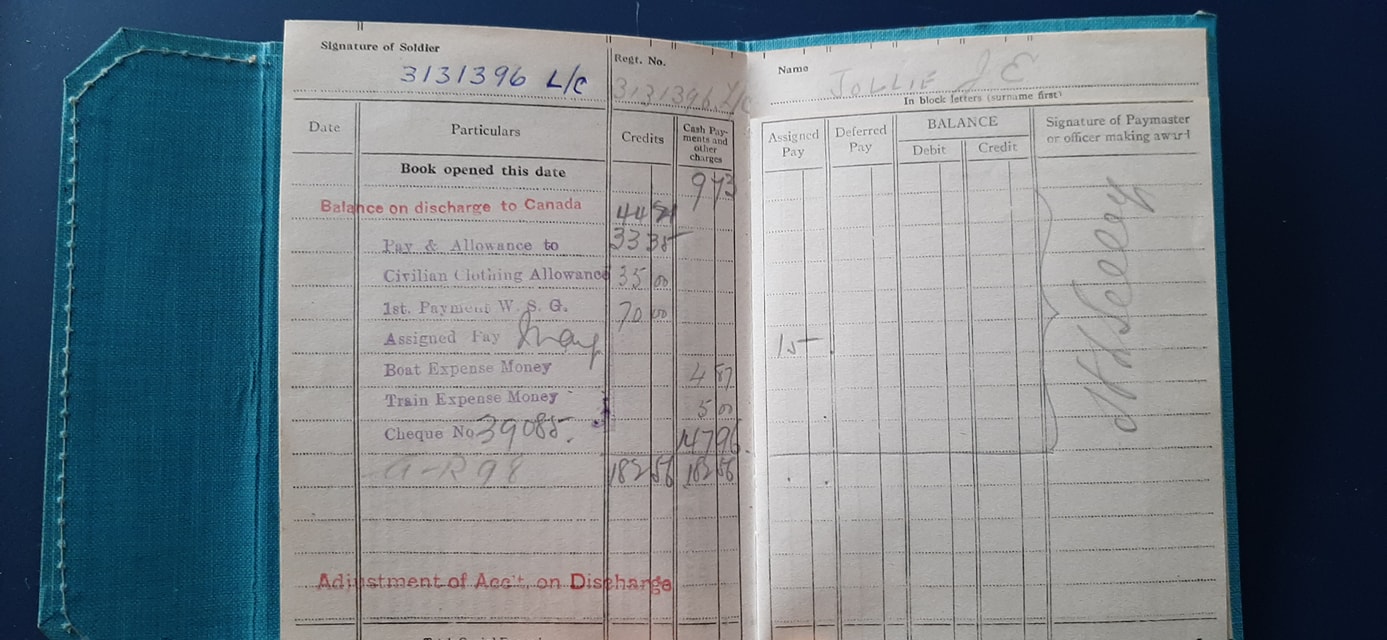 Signature of Soldier
3131396 L/C
Regt. No.
3131396 L/C
Date Particulars Credits Cash Pay-
ments and
other
charges
Book opened this date
9 73
Balance on discharge to Canada 44
Pay & Allowance to 33 35
Civilian Clothing Allowance 35 00
1st. Payment W. S. G. 70 00
Assigned Pay
Boat Expense Money 4 87
Train Expense Money 5 00
Cheque No 39085. 147 96
182 56 182 56
Adjustment of Acc't. on Discharge
Name JOLLIE J E
In block letters (surname first)
Assigned
Pay
Deferred
Pay
BALANCE
Debit Credit
Signature of Paymaster
or officer making award
15